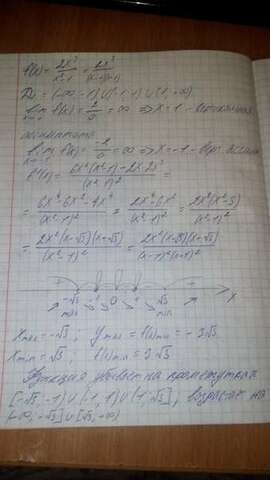 f(x) = 2x³/(x²-1) = 2x³/((x-1)(x+1))
D: (-∞, -1) ∪ (-1, 1) ∪ (1, +∞)
lim x→1 f(x) = 2/0 = ∞ => x = 1 - вертикальная
асимптота
lim x→-1 f(x) = -2/0 = ∞ => x = -1 - верт. асимпт
f'(x) = (6x²(x²-1) - 2x·2x³)/(x²-1)² =
= (6x⁴-6x²-4x⁴)/(x²-1)² = (2x⁴-6x²)/(x²-1)² = 2x²(x²-3)/(x²-1)²
= 2x²(x-√3)(x+√3)/(x²-1)² = 2x²(x-√3)(x+√3)/((x-1)²(x+1)²)
-√3 -1 0 1 √3 x
max min
xmax = -√3; ymax = f(x)max = -3√3
xmin = √3; f(x)min = 3√3
Функция убывает на промежутках
[-√3, -1) ∪ (-1, 1) ∪ (1, √3], возрастает на
(-∞, -√3] ∪ [√3, +∞)